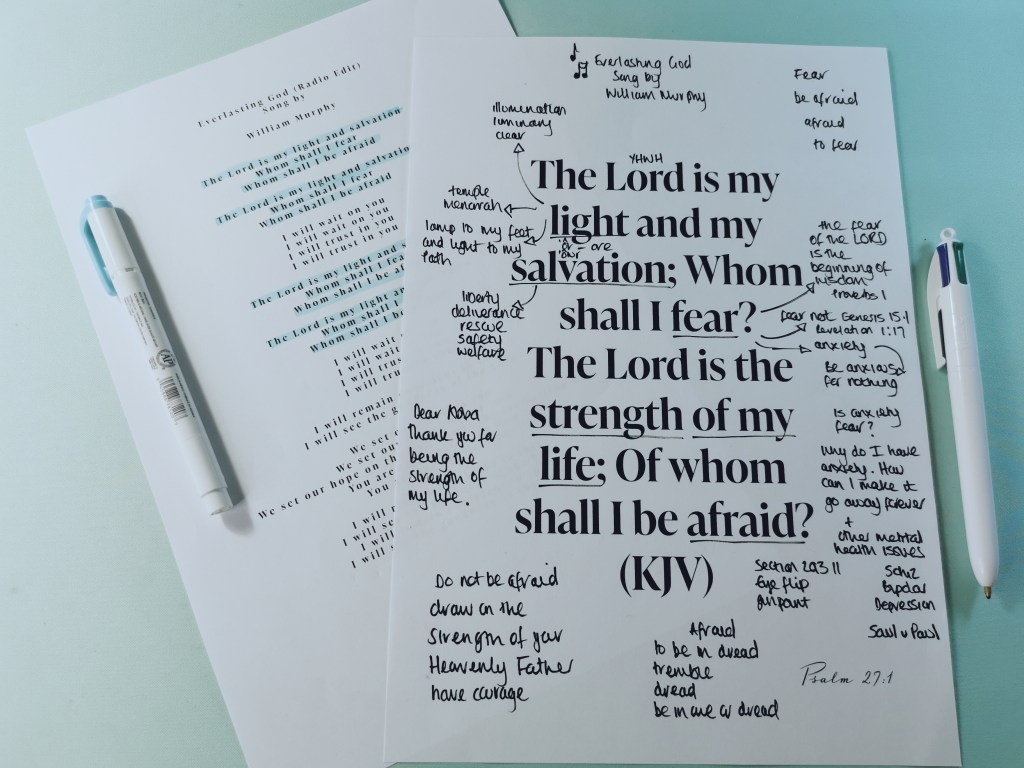 Everlasting God (Radio Edit)
Song by
William Murphy
The Lord is my light and salvation
Whom shall I fear
Whom shall I be afraid
The Lord is my light and salvation
Whom shall I fear
Whom shall I be afraid
I will wait on you
I will wait on you
I will trust in you
I will trust in you
The Lord is my light and s
Whom shall I fea
Whom shall I be af
The Lord is my light an
Whom shall I
Whom shall I be
I will wait
I will wait
I will tru
I will tru
I will remain
I will see the g
We set o
We set ou
We set our hope on th
You are
You
I will
I will
I will
Everlasting God
Song by
William Murphy
Fear
be afraid
afraid
to fear
illumination
luminary
clear
YHWH
The Lord is my
light and my
salvation; Whom
shall I fear?
The Lord is the
strength of my
life; Of whom
shall I be afraid?
(KJV)
temple
menorah
lamp to my feet
and light to my
Path
liberty
deliverance
rescue
safety
welfare
the fear
of the LORD
is the
beginning of
wisdom
Proverbs 1
fear not Genesis 15:1
Revelation 1:17
anxiety
Be anxious
for nothing
Is anxiety
fear?
Why do I have
anxiety. How
can I make it
go away forever
+
other mental
health issues
Schiz
Bipolar
Depression
Saul v Paul
Section 2 3
Eye flip
Dear
thank you for
being the
strength of
my life.
Do not be afraid
draw on the
strength of your
Heavenly Father
have courage
Afraid
to be in dread
tremble
dread
be in awe or dread
Psalm 27:1